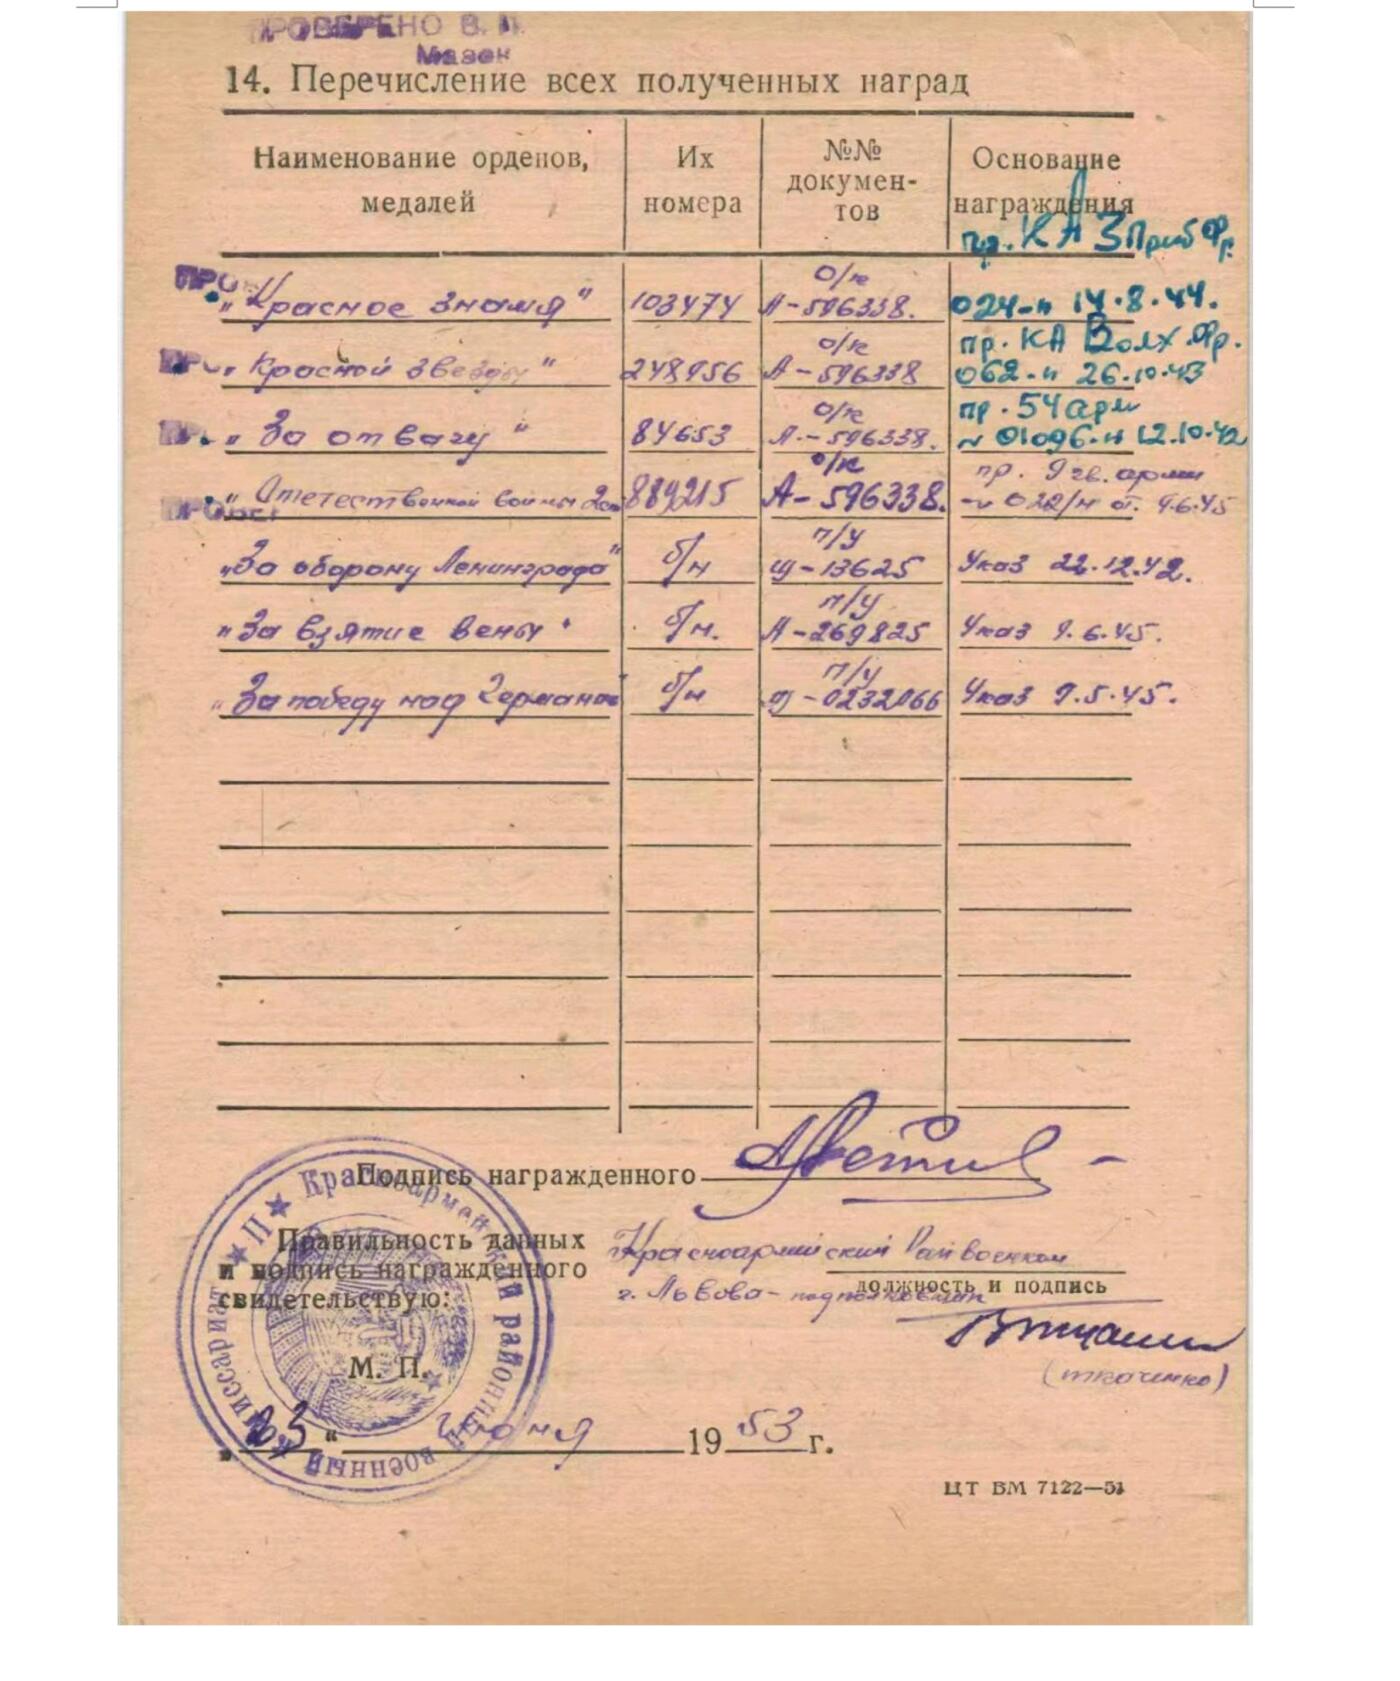 ПРОВЕРЕНО В. П.
Мазек
14. Перечисление всех полученных наград
Наименование орденов, медалей
Их номера
№№ докумен-
тов
Основание награждения
пр. КА 3 Приб Фр.
ПРО
„Красное знамя“ 103474 о/к А-596338. 024-н 14.8.44.
пр. КА Волх. Фр.
„Красной звезды“ 248956 о/к А-596338 062-н 26.10.43
пр. 54 арм
„За отвагу“ 84653 о/к А-596338. № 01096-н 12.10.42
пр. 9 гв. армии
„Отечественной войны 2 ст. 889215 о/к А-596338. № 022/н от. 9.6.45
ПРОВЕР
„За оборону Ленинграда“ б/н п/у Щ-13625 Указ 22.12.42.
„За взятие Вены“ б/н. п/у А-269825 Указ 9.6.45.
„За победу над Германией б/н п/у Щ-0232066 Указ 9.5.45.
Подпись награжденного
Правильность данных
и подпись награжденного
свидетельствую:
Красноармейский Райвоенком
должность и подпись
г. Львова - подполковник
(Ткаченко)
М. П.
Красноармейский районный военный комиссариат
„23“ июня 1953 г.
ЦТ ВМ 7122—51